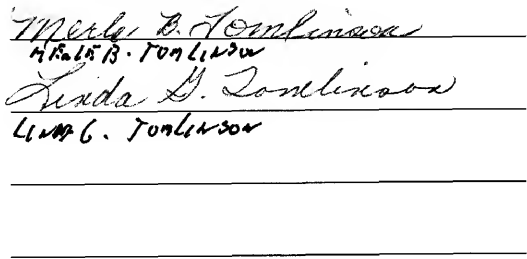 Merle B. Tomlinson
MERLE B. TOMLINSON
Linda G. Tomlinson
LINDA G. TOMLINSON